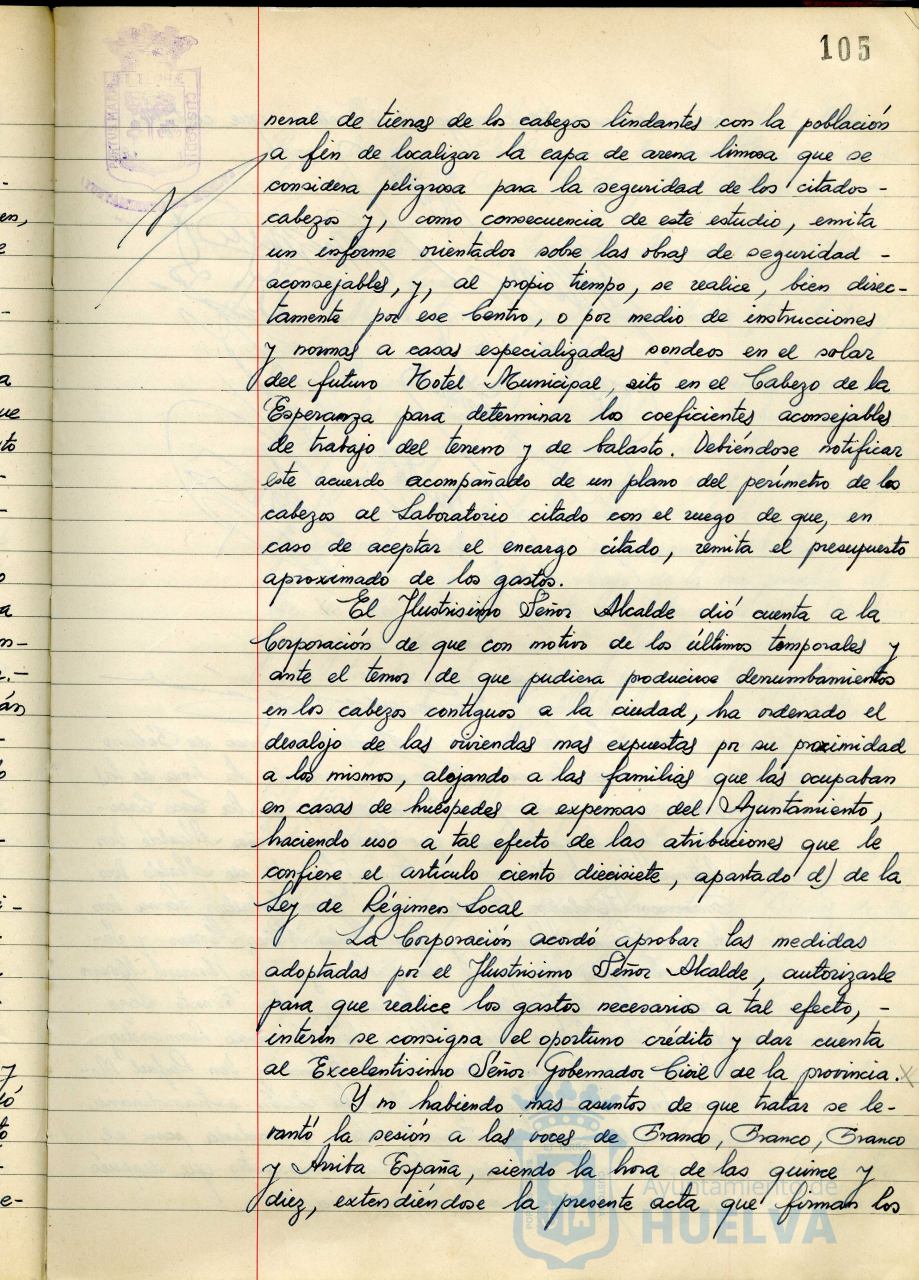 105
neral de tierras de los cabezos lindantes con la población
a fin de localizar la capa de arena limosa que se
considera peligrosa para la seguridad de los citados -
cabezos y, como consecuencia de este estudio, emita
un informe orientador sobre las obras de seguridad -
aconsejables, y, al propio tiempo, se realice, bien direc-
tamente por ese Centro, o por medio de instrucciones
y normas a casas especializadas sondeos en el solar
del futuro Hotel Municipal, sito en el Cabezo de la
Esperanza para determinar los coeficientes aconsejables
de trabajo del terreno y de balasto. Debiéndose notificar
este acuerdo acompañado de un plano del perímetro de los
cabezos al Laboratorio citado con el ruego de que, en
caso de aceptar el encargo citado, remita el presupuesto
aproximado de los gastos.
El Ilustrisimo Señor Alcalde dió cuenta a la
Corporación de que con motivo de los últimos temporales y
ante el temor de que pudiera producirse derrumbamientos
en los cabezos contiguos a la ciudad, ha ordenado el
desalojo de las viviendas mas expuestas por su proximidad
a los mismos, alojando a las familias que las ocupaban
en casas de huéspedes a expensas del Ayuntamiento,
haciendo uso a tal efecto de las atribuciones que le
confiere el artículo ciento diecisiete, apartado d) de la
Ley de Régimen Local
La Corporación acordó aprobar las medidas
adoptadas por el Ilustrisimo Señor Alcalde, autorizarle
para que realice los gastos necesarios a tal efecto, -
interin se consigna el oportuno crédito y dar cuenta
al Excelentisimo Señor Gobernador Civil de la provincia.
Y no habiendo mas asuntos de que tratar se le-
vantó la sesión a las voces de Franco, Franco, Franco
y Arriba España, siendo la hora de las quince y
diez, extendiéndose la presente acta que firman los
Ayuntamiento de
HUELVA